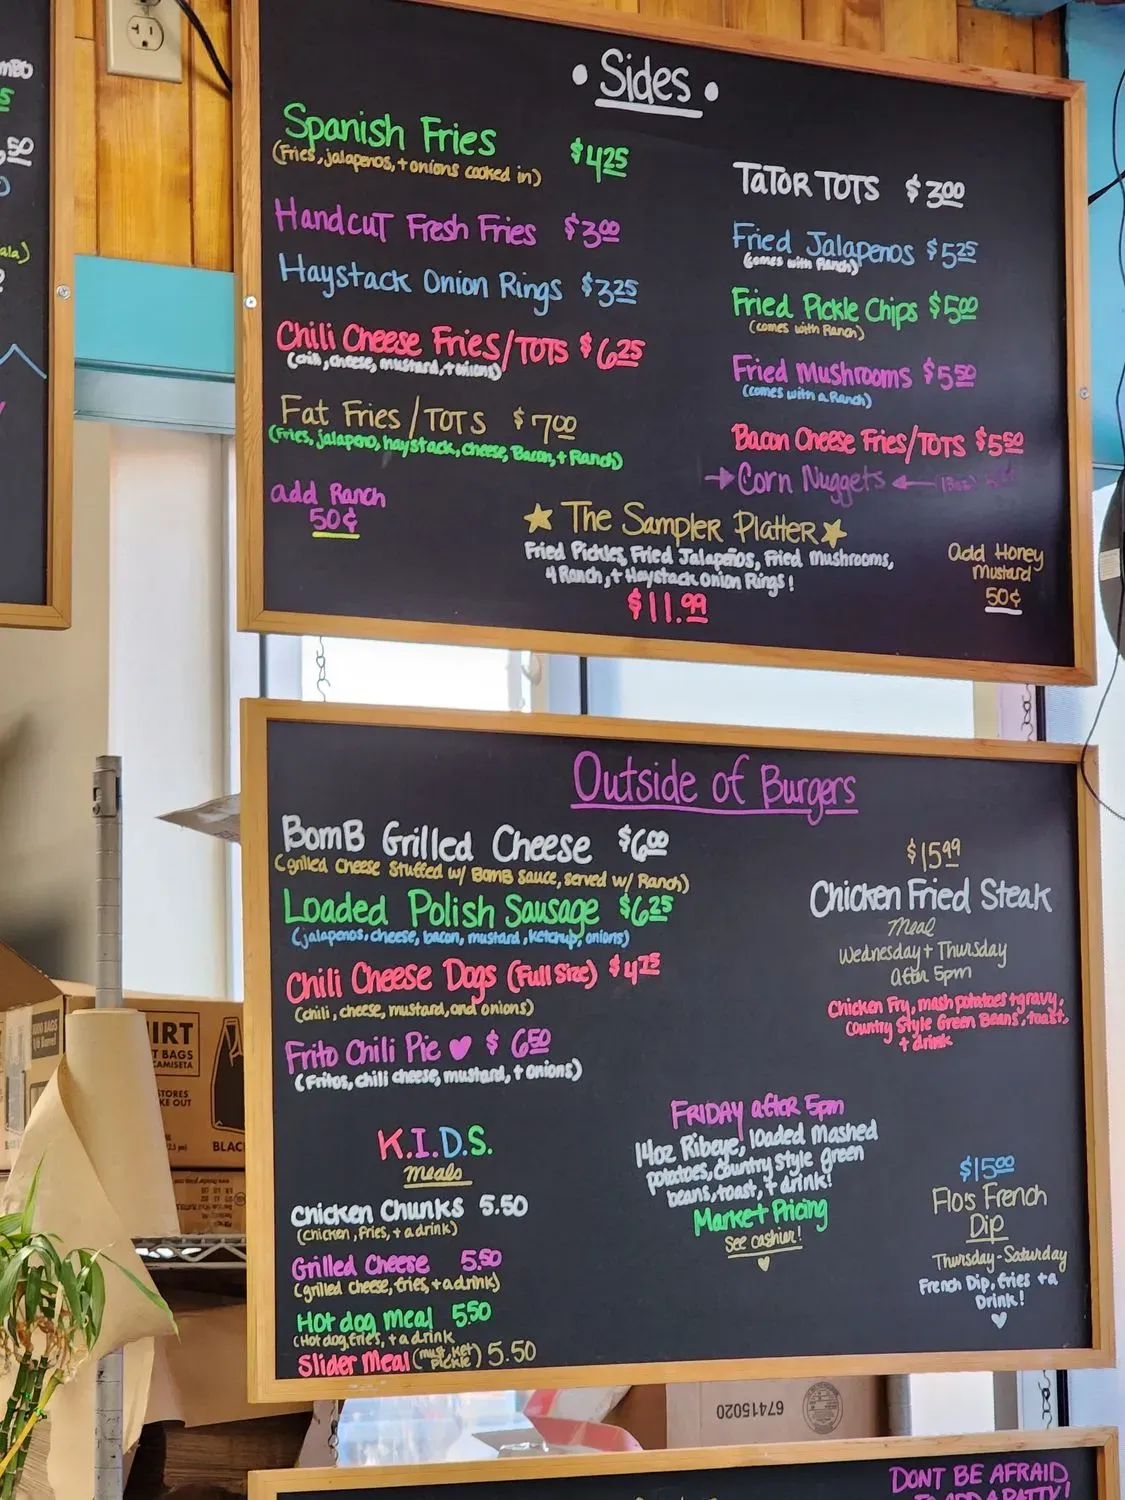 • Sides •
Spanish Fries $4.25
(Fries, jalapenos, + onions cooked in)
Handcut Fresh Fries $3.00
Haystack Onion Rings $3.25
Chili Cheese Fries/TOTS $6.25
(chili, cheese, mustard, + onions)
Fat Fries / TOTS $7.00
(Fries, jalapeno, haystack, cheese, Bacon, + Ranch)
add Ranch
50¢
TaTOR TOTS $3.00
Fried Jalapenos $5.25
(comes with Ranch)
Fried Pickle Chips $5.00
(comes with Ranch)
Fried Mushrooms $5.50
(comes with a Ranch)
Bacon Cheese Fries/TOTS $5.50
→ Corn Nuggets ←
★ The Sampler Platter ★
Fried Pickles, Fried Jalapeños, Fried Mushrooms,
4 Ranch, + Haystack Onion Rings!
$11.99
add Honey
Mustard
50¢
Outside of Burgers
BomB Grilled Cheese $6.00
(grilled cheese stuffed w/ BomB Sauce, served w/ Ranch)
Loaded Polish Sausage $6.25
(jalapenos, cheese, bacon, mustard, ketchup, onions)
Chili Cheese Dogs (Full Size) $4.75
(chili, cheese, mustard, and onions)
Frito Chili Pie ♥ $6.50
(Fritos, chili cheese, mustard, + onions)
K.I.D.S.
meals
Chicken Chunks 5.50
(chicken, fries, + a drink)
Grilled Cheese 5.50
(grilled cheese, fries, + a drink)
Hot dog meal 5.50
(Hot dog, fries, + a drink
Slider Meal (must, ket, pickle) 5.50
$15.99
Chicken Fried Steak
Meal
Wednesday + Thursday
after 5pm
Chicken Fry, mash potatoes + gravy,
Country Style Green Beans, toast,
+ drink
FRIDAY after 5pm
14oz Ribeye, loaded mashed
potatoes, country style green
beans, toast, + drink!
Market Pricing
see cashier!
$15.00
Flo's French
Dip
Thursday-Saturday
French Dip, fries + a
Drink!
IRT
T BAGS
CAMISETA
STORES
KE OUT
BLAC
67415020
DONT BE AFRAID